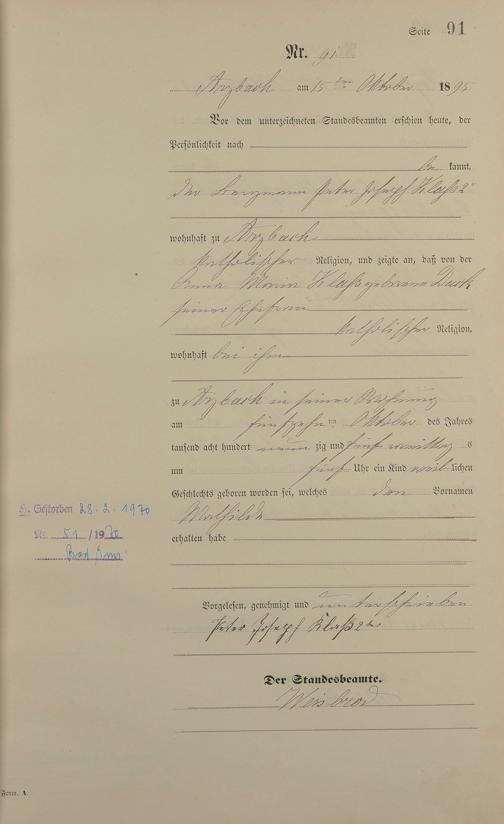 Seite 91
Nr. 91
Arzbach am 15ten Oktober 1895
Vor dem unterzeichneten Standesbeamten erschien heute, der
Persönlichkeit nach
be kannt,
der Bergmann Peter Joseph Klaß 2r
wohnhaft zu Arzbach
katholischer Religion, und zeigte an, daß von der
Anna Maria Klaß geborene
seiner Ehefrau
katholischer Religion,
wohnhaft bei ihm
zu Arzbach in seiner Wohnung
am fünfzehnten Oktober des Jahres
tausend acht hundert neun zig und fünf vormittag s
um fünf Uhr ein Kind weib lichen
Geschlechts geboren worden sei, welches den Vornamen
Mathilde
erhalten habe
Vorgelesen, genehmigt und unterschrieben
Peter Joseph Klaß 2ter
Der Standesbeamte.
Weisbrod
Gestorben 28.2.1970
Nr. 51/1970
Bad Ems
Form. A.